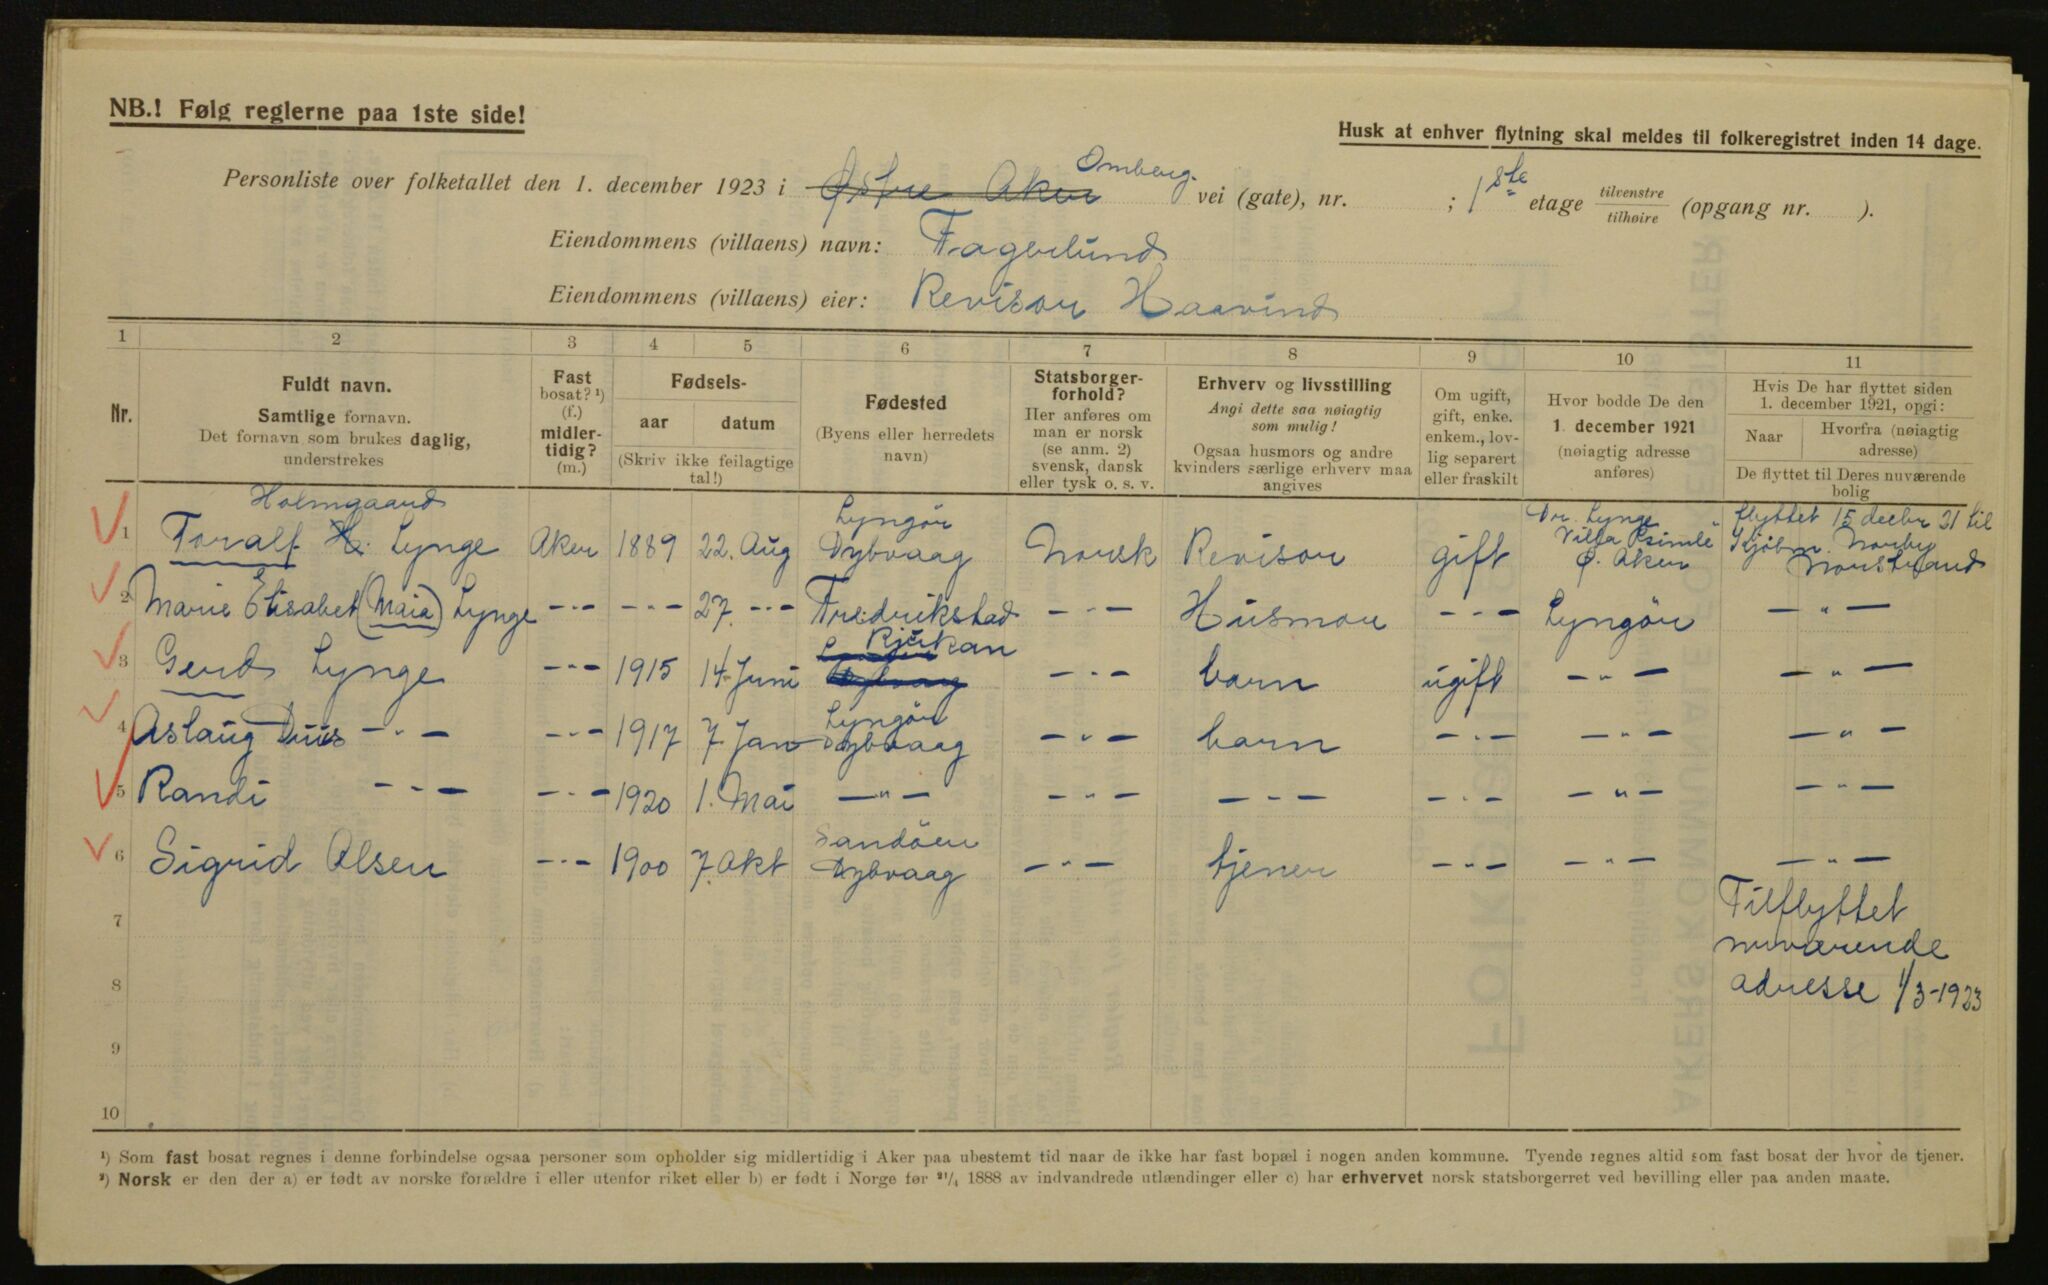 NB.! Følg reglerne paa 1ste side!
Husk at enhver flytning skal meldes til folkeregistret inden 14 dage.
Personliste over folketallet den 1. december 1923 i Østre Aker Omberg- vei (gate), nr. ; 1ste etage tilvenstre / tilhøire (opgang nr. ).
Eiendommens (villaens) navn: Fagerlund
Eiendommens (villaens) eier: Revisor Haavind
1 2 3 4 5 6 7 8 9 10 11
Nr.
Fuldt navn.
Samtlige fornavn.
Det fornavn som brukes daglig,
understrekes
Fast
bosat? ¹)
(f.)
midler-
tidig?
(m.)
Fødsels-
aar datum
(Skriv ikke feilagtige
tal!)
Fødested
(Byens eller herredets
navn)
Statsborger-
forhold?
Her anføres om
man er norsk
(se anm. 2)
svensk, dansk
eller tysk o. s. v.
Erhverv og livsstilling
Angi dette saa nøiagtig
som mulig!
Ogsaa husmors og andre
kvinders særlige erhverv maa
angives
Om ugift,
gift, enke.
enkem., lov-
lig separert
eller fraskilt
Hvor bodde De den
1. december 1921
(nøiagtig adresse
anføres)
Hvis De har flyttet siden
1. december 1921, opgi:
Naar Hvorfra (nøiagtig
adresse)
De flyttet til Deres nuværende
bolig
Holmgaard
1 Toralf H. Lynge Aker 1889 22. Aug Lyngör Dybvaag Norsk Revisor gift Dr. Lynge Villa Ø. Aker flyttet 15 decbr 21 til Kjøbm. Norby Norstrand
2 Marie Elisabet (Maia) Lynge —"— —"— 27. —"— Fredrikstad —"— Husmor —"— Lyngör —"—
3 Gerd Lynge —"— 1915 14 Juni Lyngör Dybvaag Rjukan —"— barn ugift —"— —"—
4 Aslaug Duus —"— —"— 1917 7 Jan Lyngör Dybvaag —"— barn —"— —"— —"—
5 Randi —"— —"— 1920 1. Mai —"— —"— —"— —"— —"— —"—
6 Sigrid Olsen —"— 1900 7. Okt Sandöen Dybvaag —"— tjener —"— —"— —"—
7 Tilflyttet
nuværende
8 adresse 1/3-1923
9
10
¹) Som fast bosat regnes i denne forbindelse ogsaa personer som opholder sig midlertidig i Aker paa ubestemt tid naar de ikke har fast bopæl i nogen anden kommune. Tyende regnes altid som fast bosat der hvor de tjener.
²) Norsk er den der a) er født av norske forældre i eller utenfor riket eller b) er født i Norge før 21/4 1888 av indvandrede utlændinger eller c) har erhvervet norsk statsborgerret ved bevilling eller paa anden maate.